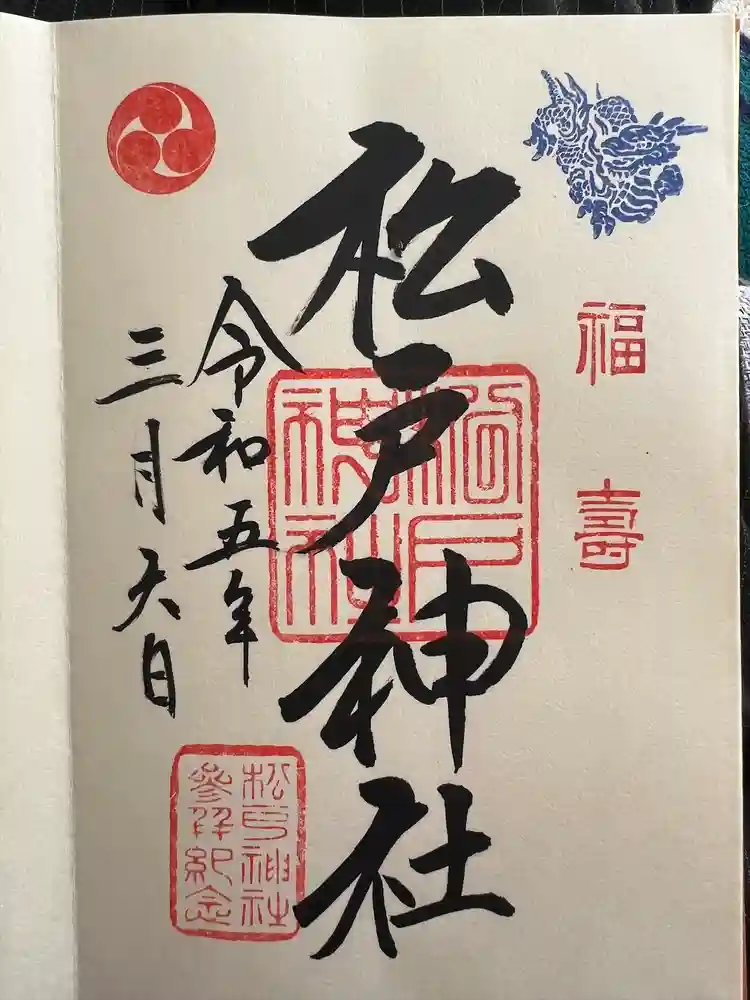 福壽
松戸神社
松戸神社
令和五年
三月六日
松戸神社
參拜紀念